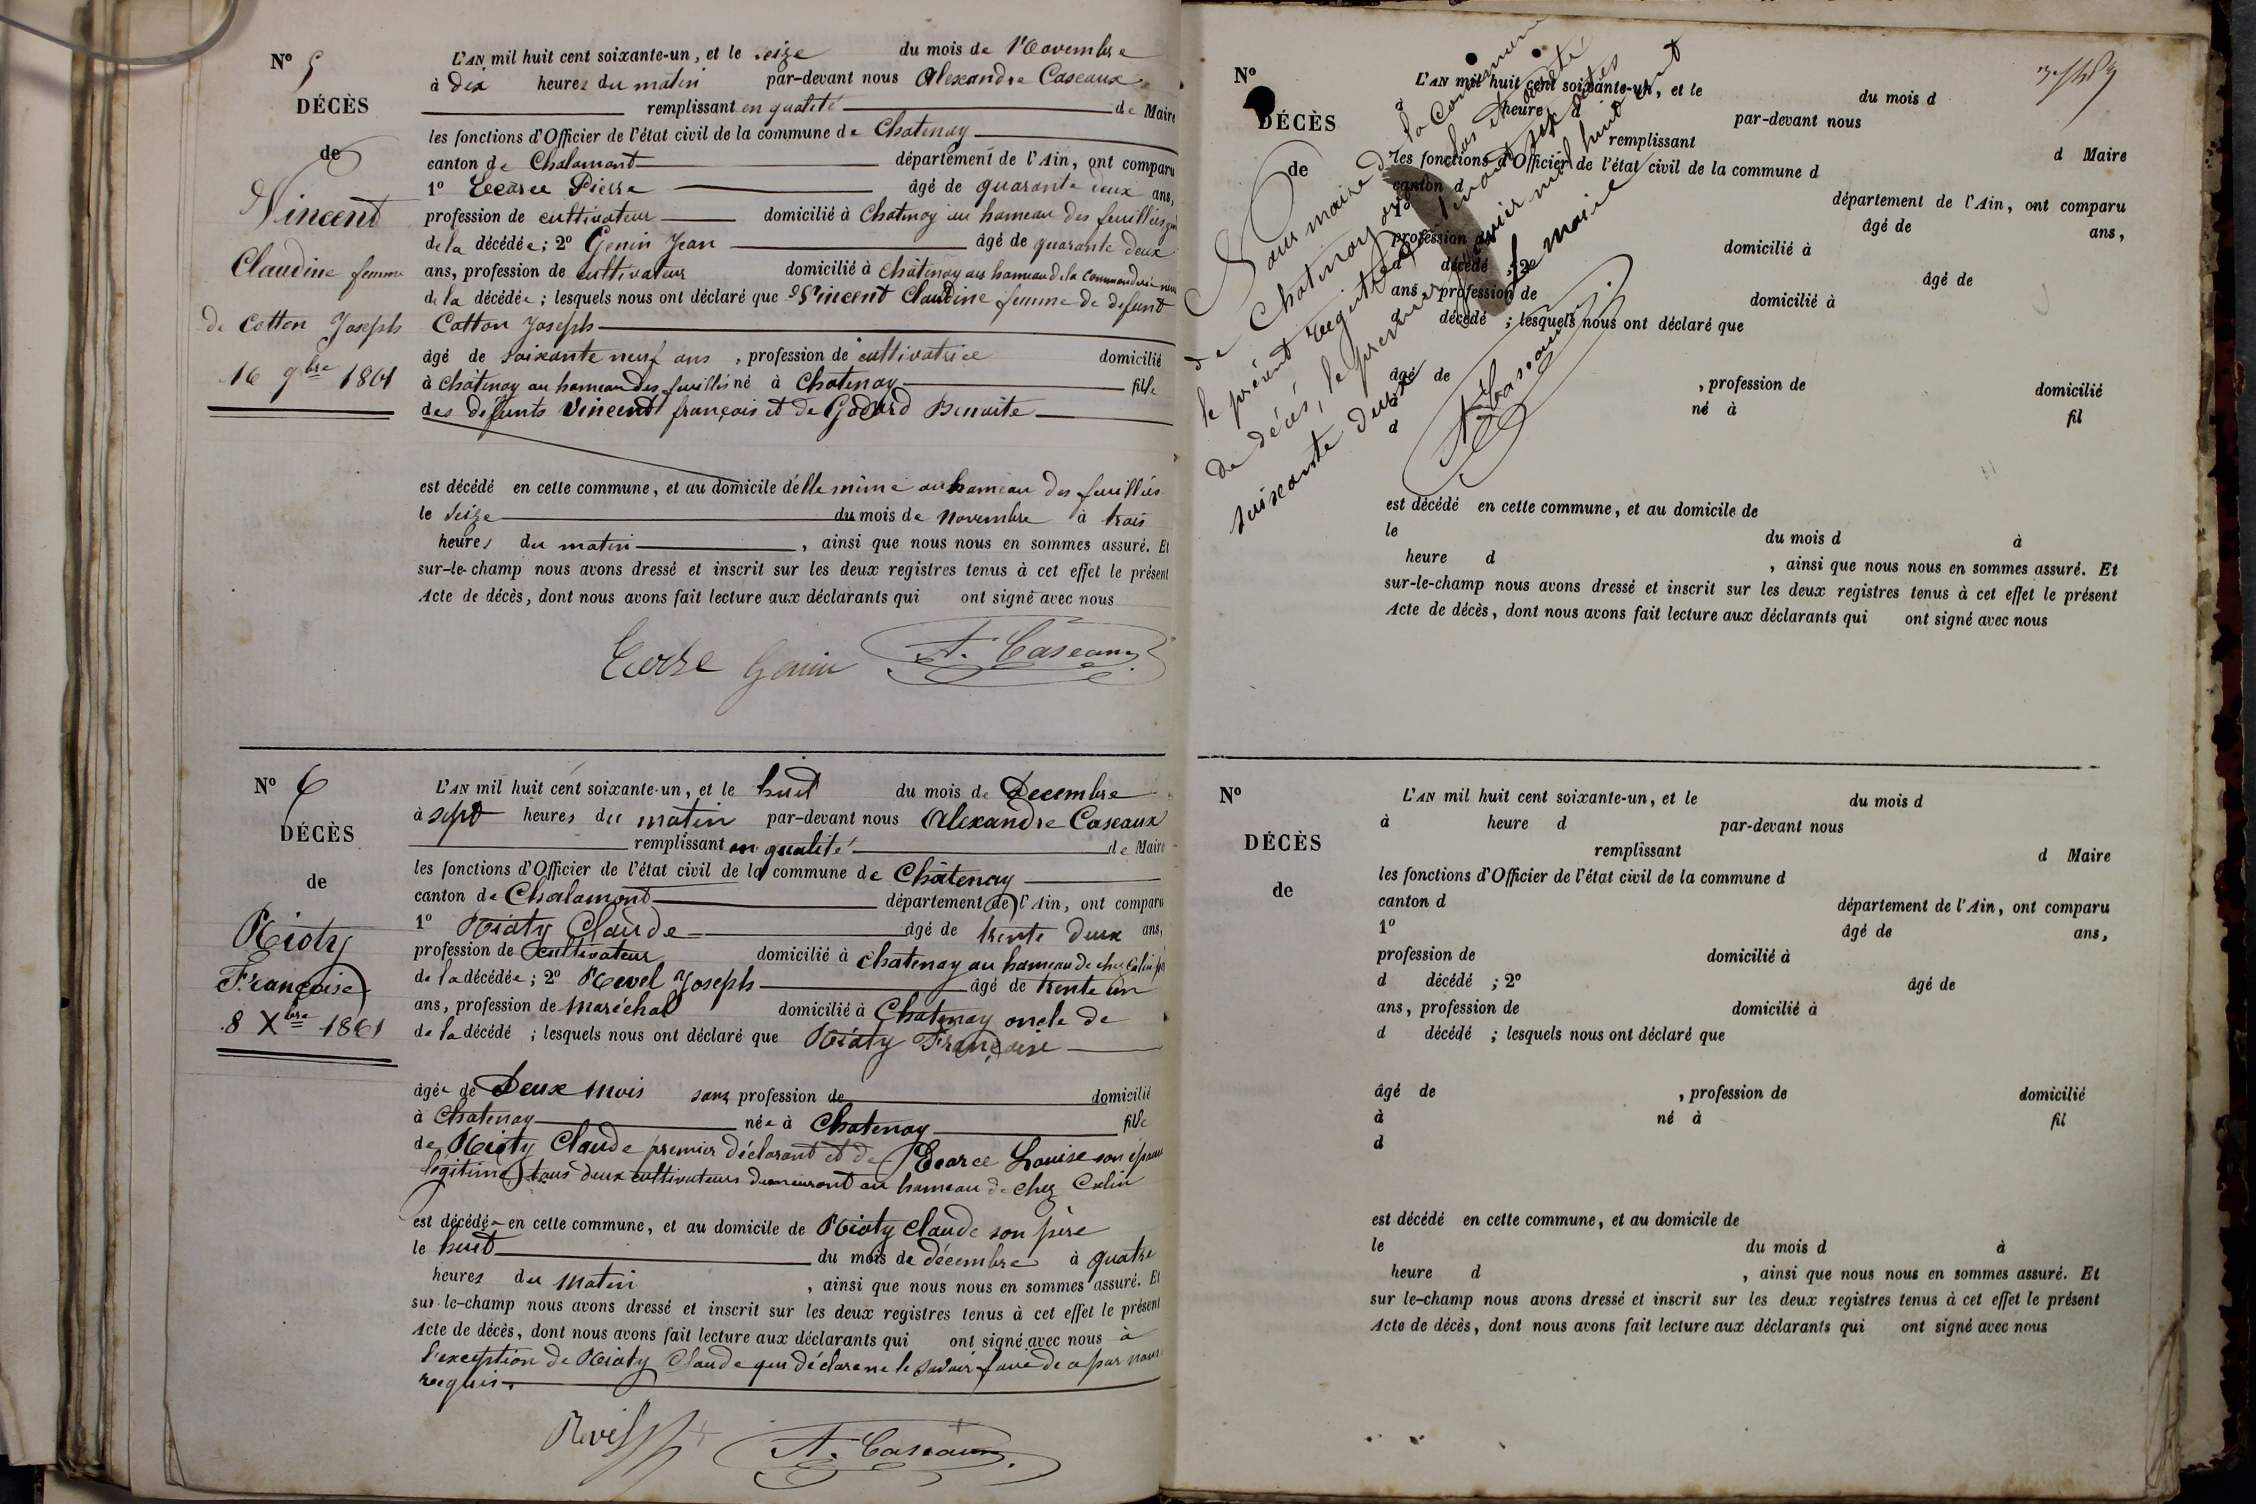 Nº 5
DÉCÈS
de
Vincent
Claudine femme
de Cotton Joseph
16 9bre 1861
L'AN mil huit cent soixante-un, et le seize du mois de Novembre
à dix heures du matin par-devant nous Alexandre Caseaux
remplissant en qualité de Maire
les fonctions d'Officier de l'état civil de la commune de Chatenay
canton de Chalamont département de l'Ain, ont comparu
1º Ecarce Pierre âgé de quarante deux ans,
profession de cultivateur domicilié à Chatenay au hameau des feuillées
de la décédée; 2º Genin Jean âgé de quarante deux
ans, profession de cultivateur domicilié à Châtenay au hameau de la Commanderie
de la décédée; lesquels nous ont déclaré que Vincent Claudine femme de défunt
Cotton Joseph
âgé de soixante neuf ans, profession de cultivatrice domicilié
à Châtenay au hameau des feuillés né à Chatenay fille
des défunts Vincent françois et de Godard Benoite
est décédé en cette commune, et au domicile d'elle même au hameau des feuillées
le seize du mois de novembre à trois
heures du matin, ainsi que nous nous en sommes assuré. Et
sur-le-champ nous avons dressé et inscrit sur les deux registres tenus à cet effet le présent
Acte de décès, dont nous avons fait lecture aux déclarants qui ont signé avec nous
Genin A. Caseaux
Nº 6
DÉCÈS
de
Rioty
Françoise
8 Xbre 1861
L'AN mil huit cent soixante-un, et le huit du mois de Decembre
à sept heures du matin par-devant nous Alexandre Caseaux
remplissant en qualité de Maire
les fonctions d'Officier de l'état civil de la commune de Châtenay
canton de Chalamont département de l'Ain, ont comparu
1º Rioty Claude âgé de trente deux ans,
profession de cultivateur domicilié à Chatenay au hameau de chez Colin
de la décédée; 2º Revel Joseph âgé de trente un
ans, profession de Maréchal domicilié à Chatenay oncle de
de la décédé; lesquels nous ont déclaré que Rioty Françoise
âgée de Deux Mois sans profession de domicilié
à Chatenay née à Chatenay fille
de Rioty Claude premier déclarant et de Ecarce Louise son épouse
légitime tous deux cultivateurs demeurant au hameau de chez Colin
est décédée en cette commune, et au domicile de Rioty Claude son père
le huit du mois de décembre à quatre
heures du matin, ainsi que nous nous en sommes assuré. Et
sur-le-champ nous avons dressé et inscrit sur les deux registres tenus à cet effet le présent
Acte de décès, dont nous avons fait lecture aux déclarants qui ont signé avec nous à
l'exception de Rioty Claude qui déclare ne le savoir faire de ce par nous
requis.
Revel A. Caseaux
Nº
DÉCÈS
de
L'AN mil huit cent soixante-un, et le du mois d
à heure d par-devant nous
remplissant d Maire
les fonctions d'Officier de l'état civil de la commune d
canton d département de l'Ain, ont comparu
1º âgé de ans,
profession de domicilié à
d décédé; 2º âgé de
ans, profession de domicilié à
d décédé; lesquels nous ont déclaré que
âgé de, profession de domicilié
à né à fil
d
est décédé en cette commune, et au domicile de
le du mois d à
heure d, ainsi que nous nous en sommes assuré. Et
sur-le-champ nous avons dressé et inscrit sur les deux registres tenus à cet effet le présent
Acte de décès, dont nous avons fait lecture aux déclarants qui ont signé avec nous
Nous maire de la Commune
de Chatenay avons clos et arrêté
le présent registre
de décès, le premier janvier mil huit cent
soixante deux
Le maire
A. Caseaux
Nº
DÉCÈS
de
L'AN mil huit cent soixante-un, et le du mois d
à heure d par-devant nous
remplissant d Maire
les fonctions d'Officier de l'état civil de la commune d
canton d département de l'Ain, ont comparu
1º âgé de ans,
profession de domicilié à
d décédé; 2º âgé de
ans, profession de domicilié à
d décédé; lesquels nous ont déclaré que
âgé de, profession de domicilié
à né à fil
d
est décédé en cette commune, et au domicile de
le du mois d à
heure d, ainsi que nous nous en sommes assuré. Et
sur le-champ nous avons dressé et inscrit sur les deux registres tenus à cet effet le présent
Acte de décès, dont nous avons fait lecture aux déclarants qui ont signé avec nous